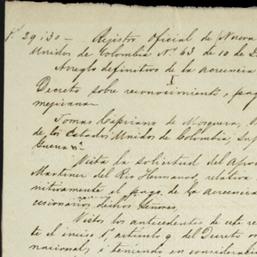 29:30 - Registro Oficial de Nueva
Unidos de Colombia Nº 63 de 10 de D
Arreglo definitivo de la acreencia
I
Decreto sobre reconocimiento, pag
mejicana -
Tomas Cipriano de Mosquera,
de los Estados Unidos de Colombia, Sup
Guerra &ª.
Vista la solicitud del Apo
Martinez del Rio Hermanos, relativa
nitivamente el pago de la acreencia
cesionarios dichos Señores,
Vistos los antecedentes de este
te el inciso 1º, articulo 9 del Decreto
nacional, i teniendo en consideració